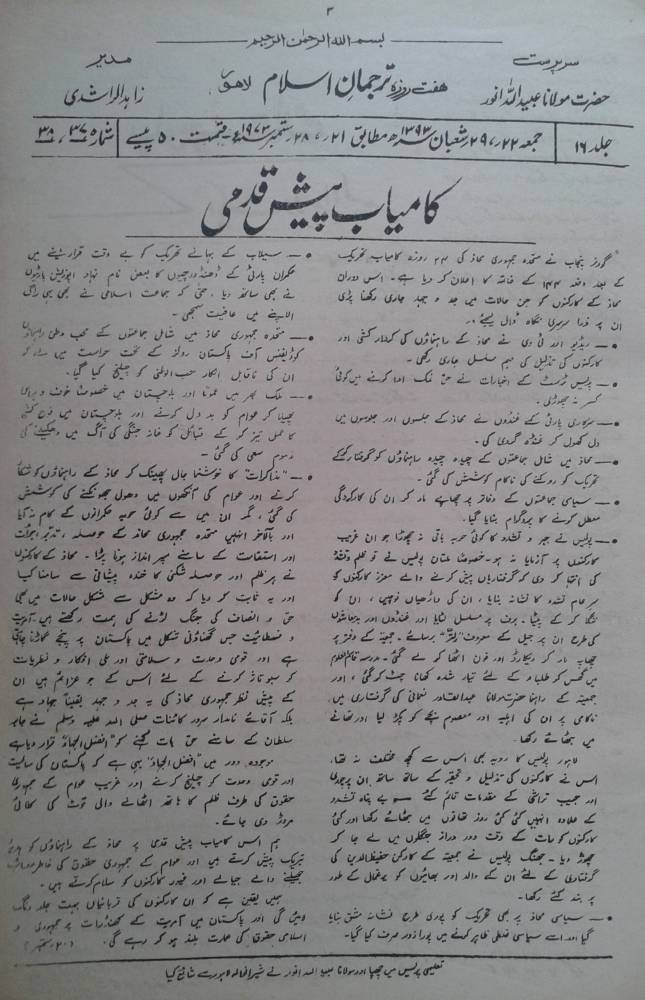 ۳
بسم اللہ الرحمٰن الرحیم
سرپرست
حضرت مولانا عبید اللہ انور
ہفت روزہ ترجمان اسلام لاہور
مدیر
زاہد الراشدی
جلد ۱۶
جمعہ ۲۲، ۲۹ شعبان ۱۳۹۳ھ مطابق ۲۱، ۲۸ ستمبر ۱۹۷۳ء - قیمت ۵۰ پیسے
شمارہ ۳۷، ۳۸
کامیاب پیش قدمی
گورنر پنجاب نے متحدہ جمہوری محاذ کی ۲۴ روزہ کامیاب تحریک
کے بعد دفعہ ۱۴۴ کے خاتمہ کا اعلان کر دیا ہے۔ اس دوران
محاذ کے کارکنوں کو جن حالات میں جد و جہد جاری رکھنا پڑی
ان پر ذرا سرسری نگاہ ڈال لیجئے۔
● — ریڈیو اور ٹی وی نے محاذ کے راہنماؤں کی کردار کشی اور
کارکنوں کی تذلیل کی مہم مسلسل جاری رکھی۔
● — پریس ٹرسٹ کے اخبارات نے حق نمک ادا کرنے میں کوئی
کسر نہ چھوڑی۔
● — سرکاری پارٹی کے غنڈوں نے محاذ کے جلسوں اور جلوسوں میں
دل کھول کر غنڈہ گردی کی۔
● — محاذ میں شامل جماعتوں کے چیدہ چیدہ راہنماؤں کو گرفتار کرکے
تحریک کو روکنے کی ناکام کوشش کی گئی۔
● — سیاسی جماعتوں کے دفاتر پر چھاپے مار کر ان کی کارکردگی
معطل کرنے کا پروگرام بنایا گیا۔
● — پولیس نے جبر و تشدد کا کوئی حربہ باقی نہ چھوڑا جو ان غریب
کارکنوں پر آزمایا نہ ہو۔ خصوصاً ملتان پولیس نے تو ظلم و تشدد
کی انتہا کر دی کہ گرفتاریاں پیش کرنے والے معزز کارکنوں کو
سرعام تشدد کا نشانہ بنایا، ان کی داڑھیاں نوچیں، ان کو
ننگا کر کے پیٹا۔ برف پر مسلسل لٹایا اور غنڈوں اور بدمعاشوں
کی طرح ان پر جیل کے معروف "لتر" برسائے۔ جمعیۃ کے دفتر پر
چھاپہ مار کر ریکارڈ اور فون اٹھا کر لے گئی۔ مدرسہ قاسم العلوم
میں گھس کر طلباء کے لئے تیار شدہ کھانا چٹ کر گئی، اور
جمعیۃ کے راہنما حضرت مولانا عبدالغفور نعمانی کی گرفتاری میں
ناکامی پر ان کی اہلیہ اور معصوم بچے کو پکڑ لیا اور تھانے
میں بٹھائے رکھا۔
لاہور پولیس کا رویہ بھی اس سے کچھ مختلف نہ تھا۔
اس نے کارکنوں کی تذلیل و تحقیر کے ساتھ ساتھ ان پر چوری
اور جیب تراشی کے مقدمات قائم کئے بے پناہ تشدد
کے علاوہ انہیں کئی کئی روز تھانوں میں بٹھائے رکھا اور کئی
کارکنوں کو رات کے وقت دور دراز جنگلوں میں لے جا کر
چھوڑ دیا۔ جھنگ پولیس نے جمعیۃ کے کارکن حفیظ الدین کی
گرفتاری کے لئے ان کے والد اور بھائیوں کو یرغمال کے طور
پر بند کئے رکھا۔
● — سیاسی محاذ پر بھی تحریک کو پوری طرح نشانہ مشق بنایا
گیا اور اسے سیاسی غلطی ظاہر کرنے میں پورا زور صرف کیا گیا۔
● — سیلاب کے بہانے تحریک کو بے وقت قرار دینے میں
حکمران پارٹی کے ڈھنڈورچیوں کا بعض نام نہاد اپوزیشن پارٹیوں
نے بھی ساتھ دیا، حتی کہ جماعت اسلامی نے بھی یہی راگ
الاپنے میں عافیت سمجھی۔
● — متحدہ جمہوری محاذ میں شامل جماعتوں کے محب وطن راہنماؤں
کو ڈیفنس آف پاکستان رولز کے تحت حراست میں لے کر
ان کی ناقابل انکار حب الوطنی کو چیلنج کیا گیا۔
● — ملک بھر میں عموماً اور بلوچستان میں خصوصاً خوف و ہراس
پھیلا کر عوام کو بد دل کرنے اور بلوچستان میں فوج کشی
کا عمل تیز کر کے قبائل کو خانہ جنگی کی آگ میں دھکیلنے کی
مذموم سعی کی گئی۔
● — "مذاکرات" کا خوشنما جال پھینک کر محاذ کے راہنماؤں کو شکار
کرنے اور عوام کی آنکھوں میں دھول جھونکنے کی کوشش
کی گئی، مگر ان میں سے کوئی حربہ حکمرانوں کے کام نہ آیا
اور بالآخر انہیں متحدہ جمہوری محاذ کے حوصلہ، تدبر، جرأت
اور استقامت کے سامنے سپر انداز ہونا پڑا۔ محاذ کے کارکنوں
نے ہر ظلم اور حوصلہ شکنی کا خندہ پیشانی سے سامنا کیا
اور یہ ثابت کر دیا کہ وہ مشکل سے مشکل حالات میں بھی
حق و انصاف کی جنگ لڑنے کی ہمت رکھتے ہیں۔ آمریت
و فسطائیت جس گھناؤنی شکل میں پاکستان پر پنجے گاڑنا چاہتی
ہے اور قومی وحدت و سلامتی اور ملی افکار و نظریات
کو سبوتاژ کرنے کے لئے اس کے جو عزائم ہیں ان
کے پیش نظر جمہوری محاذ کی یہ جد و جہد یقیناً جہاد ہے
بلکہ آقائے نامدار سرور کائنات صلی اللہ علیہ وسلم نے جابر
سلطان کے سامنے حق بات کہنے کو "افضل الجہاد" قرار دیا ہے
موجودہ دور میں "افضل الجہاد" یہی ہے کہ پاکستان کی سالمیت
اور قومی وحدت کو چیلنج کرنے اور غریب عوام کے جمہوری
حقوق کی طرف ظلم کا ہاتھ اٹھانے والی قوت کی کلائی
مروڑ دی جائے۔
ہم اس کامیاب پیش قدمی پر محاذ کے راہنماؤں کو ہدیہ
تبریک پیش کرتے ہیں اور عوام کے جمہوری حقوق کی خاطر مصائب
جھیلنے والے جیالے اور غیور کارکنوں کو سلام کرتے ہیں۔
ہمیں یقین ہے کہ ان کارکنوں کی قربانیاں بہت جلد رنگ
لائیں گی اور پاکستان میں آمریت کے کھنڈرات پر جمہوری و
اسلامی حقوق کی عمارت بلند ہو کر رہے گی۔ (۲۰ ستمبر)
تعلیمی پریس میں چھپا اور مولانا عبید اللہ انور نے شیرانوالہ لاہور سے شائع کیا